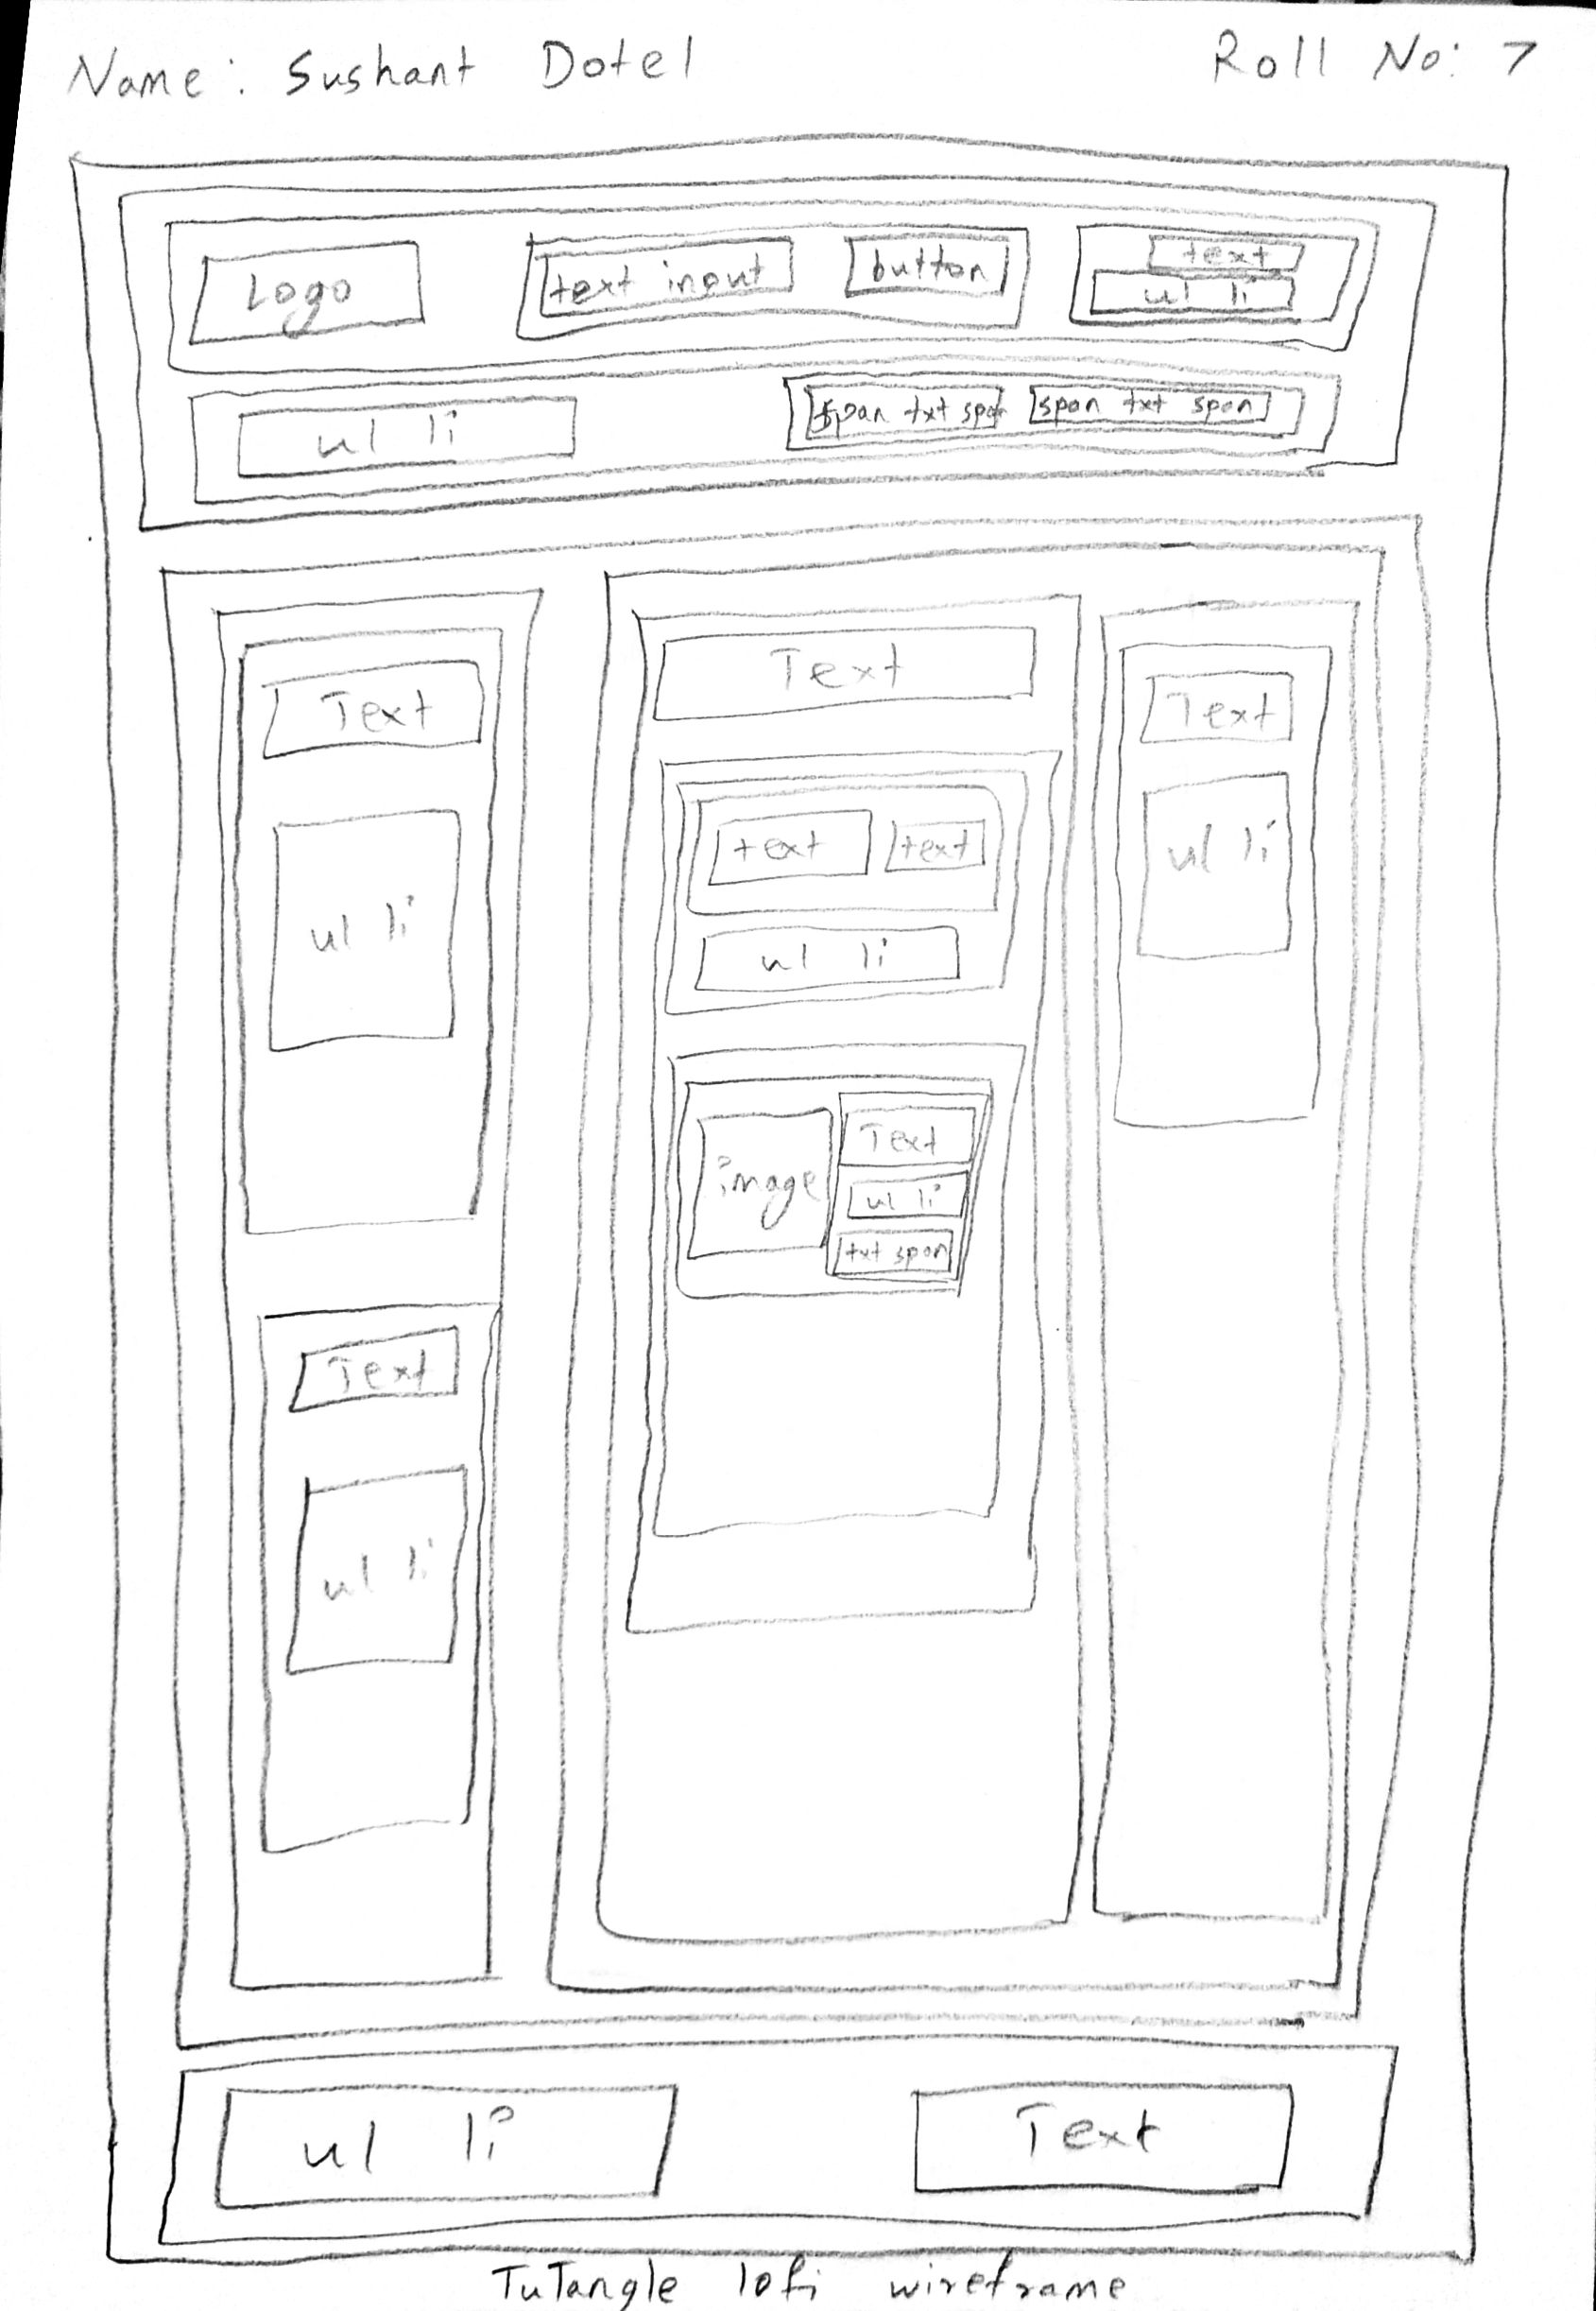 Name: Sushant Dotel Roll No: 7
Logo text input button text
ul li
ul li span txt span span txt span
Text Text Text
text text ul li
ul li ul li
Text
image ul li
txt span
Text
ul li
ul li Text
TuTangle lofi wireframe